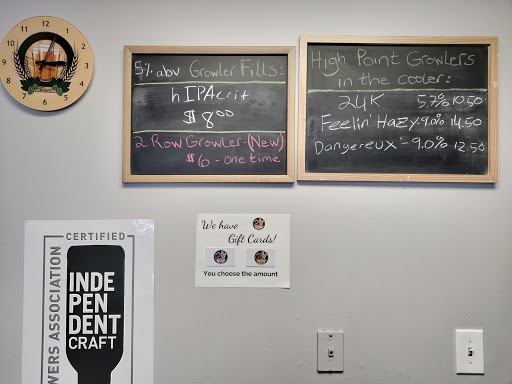 12
1
2
3
4
5
6
7
8
9
10
11
5% abv Growler Fills:
hIPAcrit
$8⁰⁰
2 Row Growler-(New)
$6 - one time
High Point Growlers
in the cooler:
24K 5.7% 10.50
Feelin' Hazy 9.0% 14.50
Dangereux - 9.0% 12.50
We have
Gift Cards!
You choose the amount
CERTIFIED
INDE
PEN
DENT
CRAFT
WERS ASSOCIATION